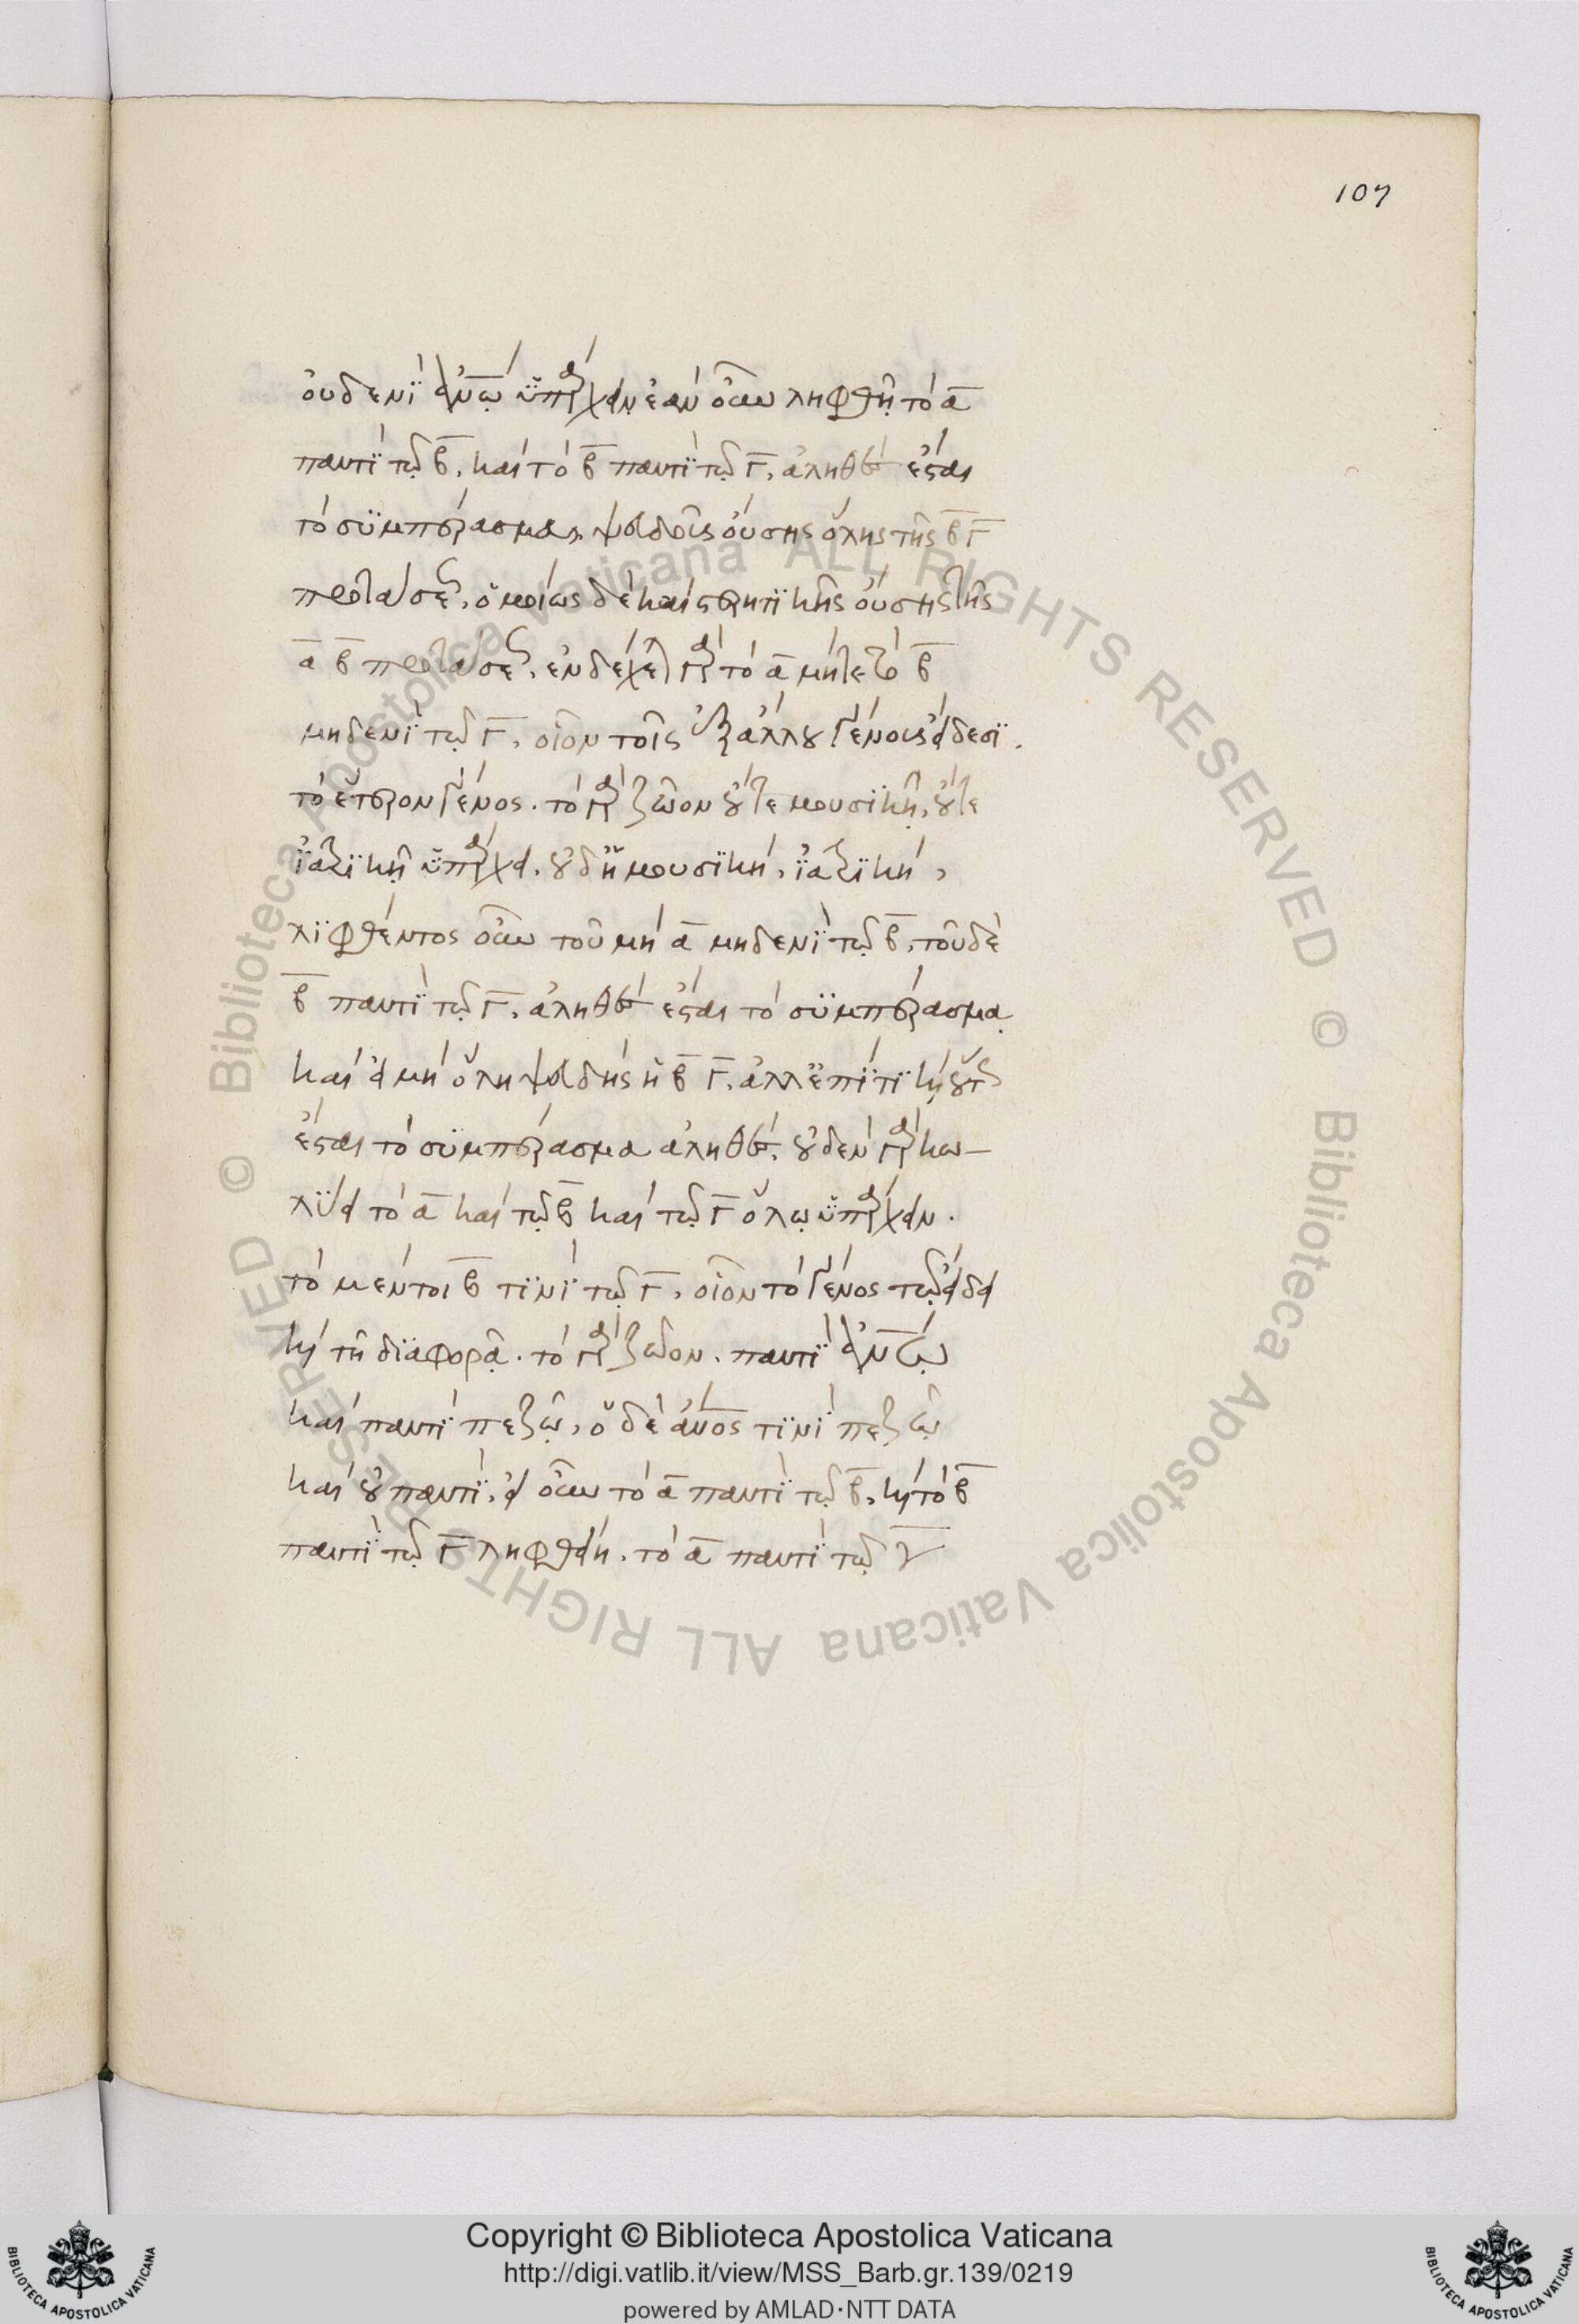 107
οὐδενὶ ἀνω ὑπάρχειν ἐὰν οὖν ληφθῆ τὸ α
παντὶ τῷ β, καὶ τὸ β παντὶ τῷ Γ, ἀληθὲς ἔσται
τὸ συμπέρασμα, ψευδοῦς οὔσης ὅλης τῆς β Γ
προτάσεως, ὁμοίως δὲ καὶ στερητικῆς οὔσης τῆς
α β προτάσεως, ἐνδέχεται γὰρ τὸ α μήτε τῷ β
μηδενὶ τῷ Γ, οἷον τοῖς ἐξ ἄλλου γένους εἴδεσι.
τὸ ἕτερον γένος. τὸ γὰρ ζῶον οὔτε μουσικῆ, οὔτε
ἰατρικῇ ὑπάρχει, οὐδ' ἡ μουσικὴ, ἰατρικὴ,
λιφθέντος οὖν τοῦ μὴ α μηδενὶ τῷ β, τοῦ δὲ
β παντὶ τῷ Γ, ἀληθὲς ἔσται τὸ συμπέρασμα
καὶ εἰ μὴ ὅλη ψευδὴς ἡ β Γ, ἀλλ' ἐπί τι καὶ οὕτως
ἔσται τὸ συμπέρασμα ἀληθές, οὐδὲν γὰρ κω-
λύει τὸ α καὶ τῷ β καὶ τῷ Γ ὅλῳ ὑπάρχειν.
τὸ μέντοι β τινὶ τῷ Γ, οἷον τὸ γένος τῷ εἴδει
καὶ τῆ διαφορᾷ. τὸ γὰρ ζῶον. παντὶ ἀνῳ
καὶ παντὶ πεζῷ, ὁ δὲ ἄνος τινὶ πεζῷ
καὶ οὐ παντὶ, εἰ οὖν τὸ α παντὶ τῷ β, καὶ τὸ β
παντὶ τῷ Γ ληφθείη. τὸ α παντὶ τῷ γ
© Biblioteca Apostolica Vaticana ALL RIGHTS RESERVED © Biblioteca Apostolica Vaticana ALL RIGHTS RESERVED
Copyright © Biblioteca Apostolica Vaticana
http://digi.vatlib.it/view/MSS_Barb.gr.139/0219
powered by AMLAD·NTT DATA
BIBLIOTECA APOSTOLICA VATICANA
BIBLIOTECA APOSTOLICA VATICANA